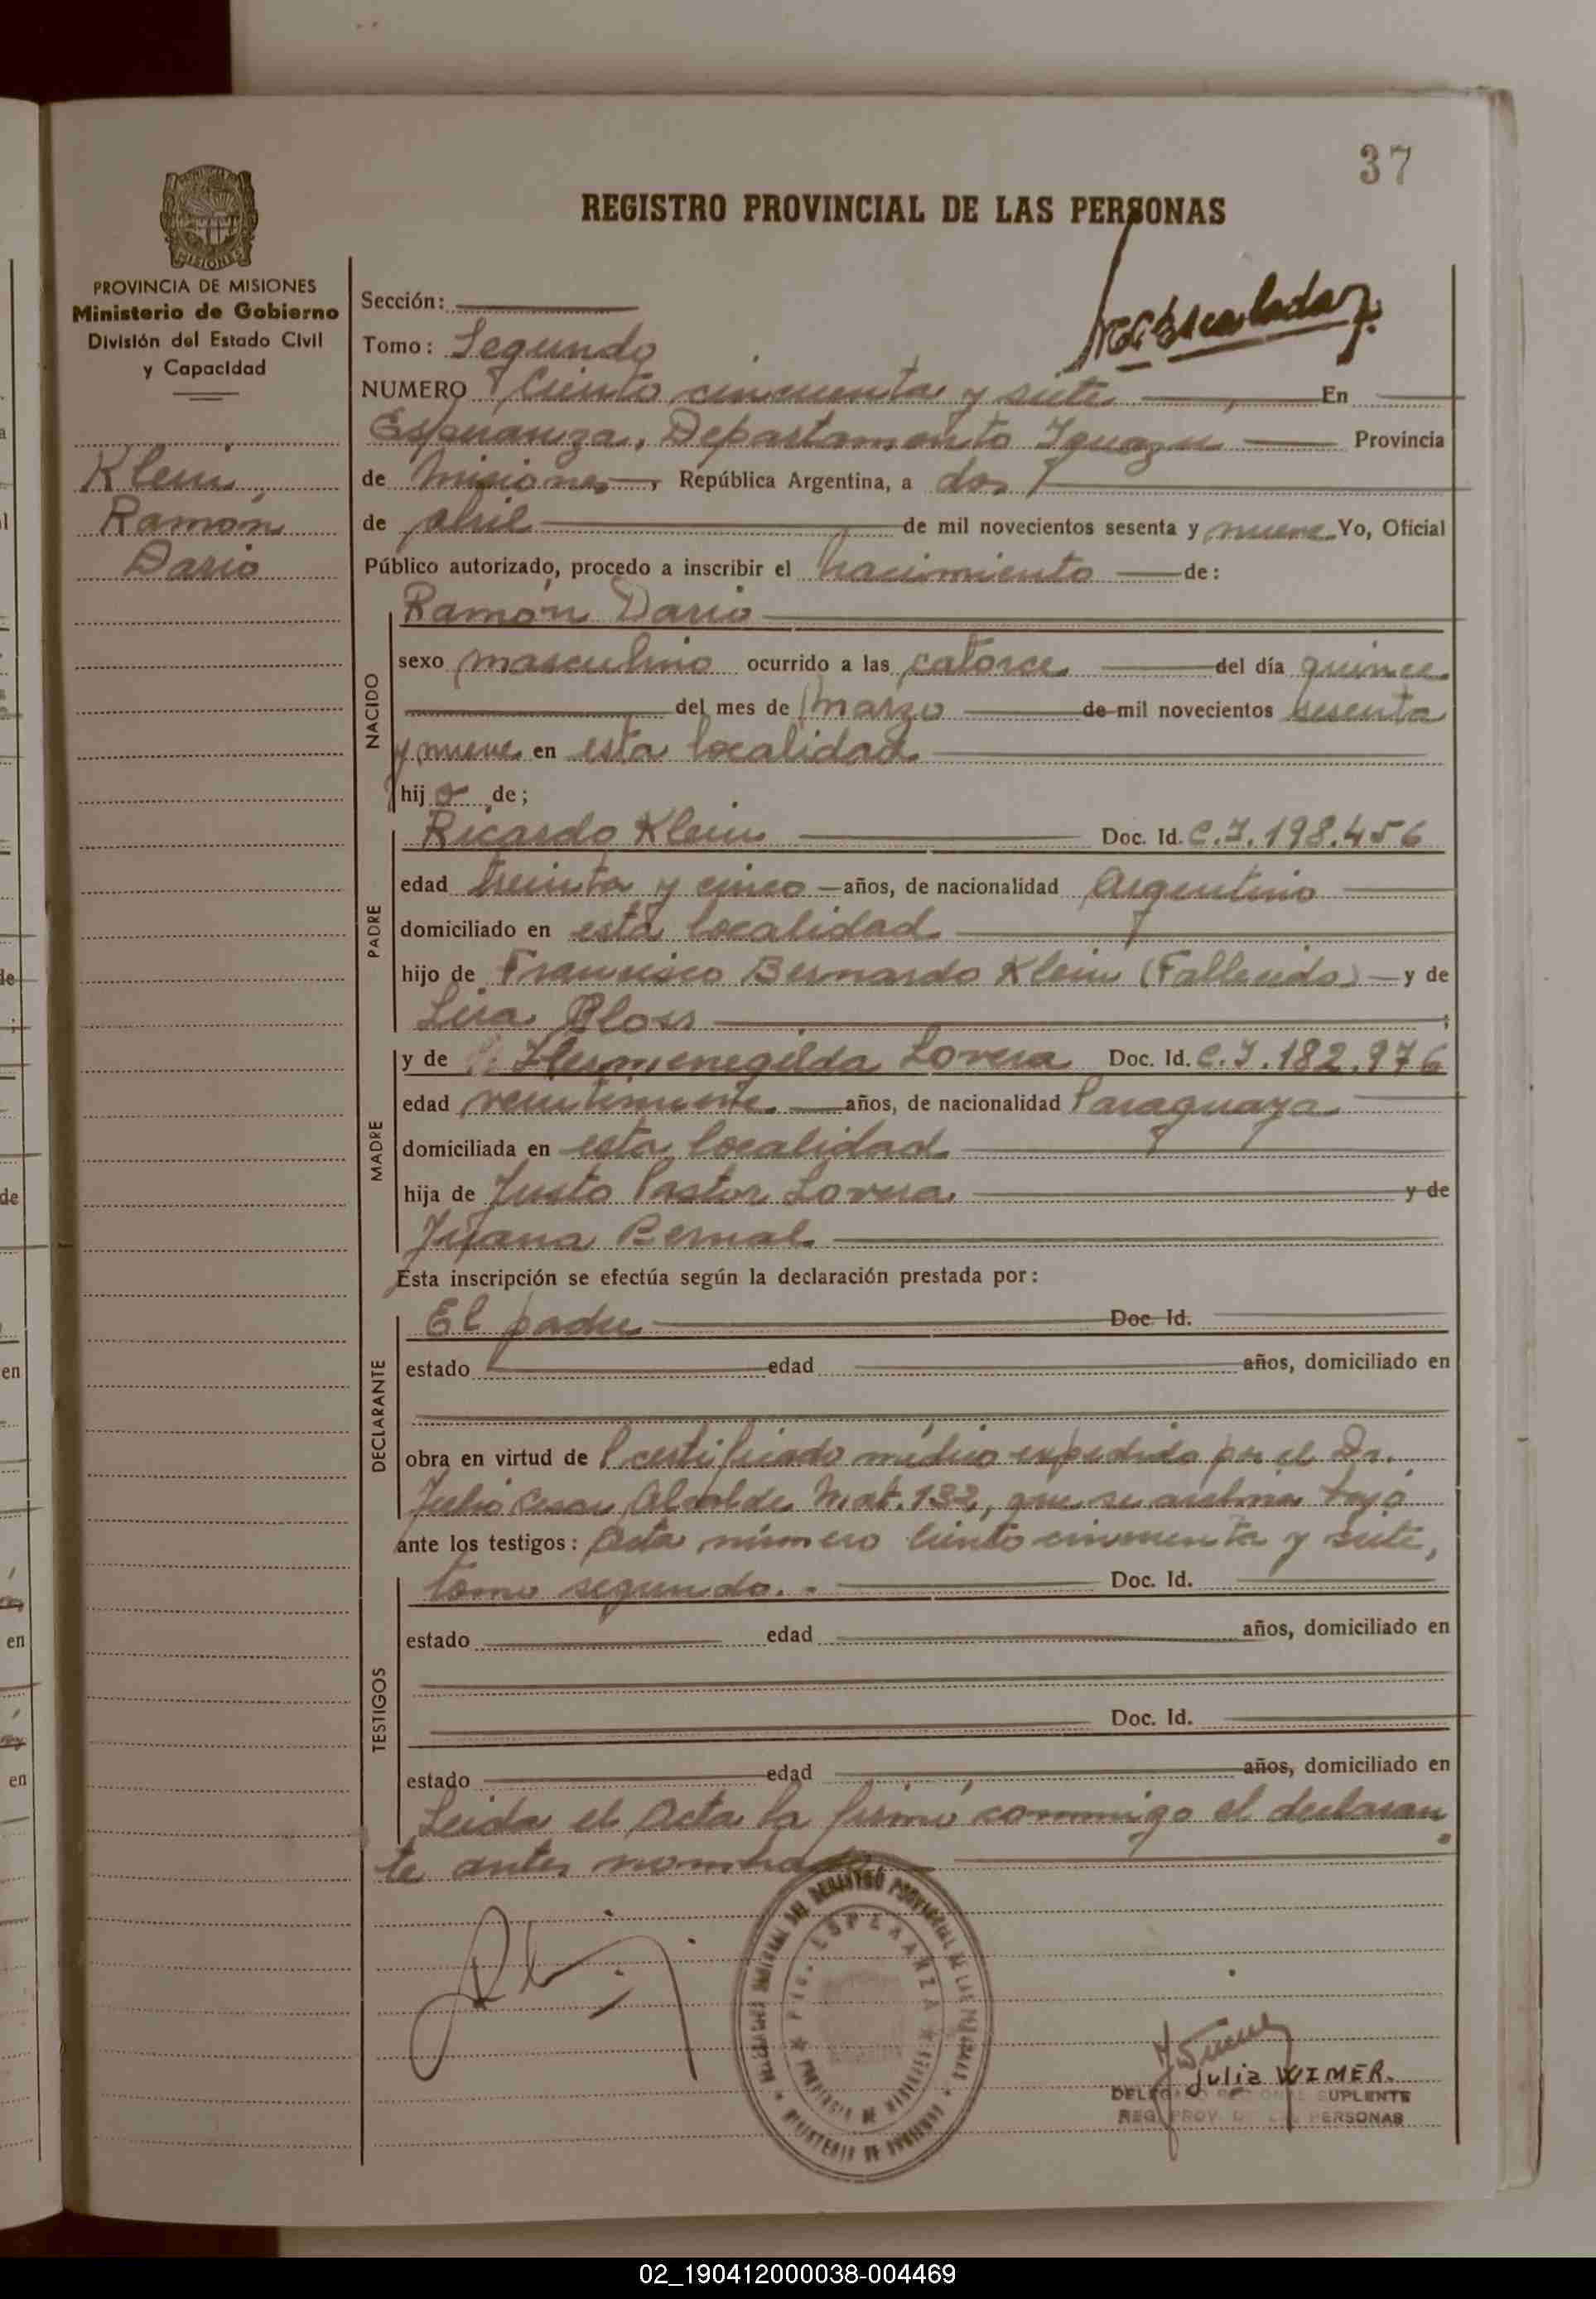 37
REGISTRO PROVINCIAL DE LAS PERSONAS
MISIONES
PROVINCIA DE MISIONES
Ministerio de Gobierno
División del Estado Civil
y Capacidad
Klein,
Ramón
Dario
Sección:
Tomo: Segundo
NUMERO Ciento cincuenta y siete En
Esperanza, Departamento Iguazu Provincia
de Misiones, República Argentina, a dos
de abril de mil novecientos sesenta y nueve Yo, Oficial
Público autorizado, procedo a inscribir el nacimiento de:
Ramón Dario
NACIDO
sexo masculino ocurrido a las catorce del día quince
del mes de Marzo de mil novecientos sesenta
y nueve en esta localidad
hijo de;
PADRE
Ricardo Klein Doc. Id. C.I. 198.456
edad treinta y cinco años, de nacionalidad Argentino
domiciliado en esta localidad
hijo de Francisco Bernardo Klein (Fallecido) y de
Lira Bloss ;
MADRE
y de Hermenegilda Lovera Doc. Id. C.I. 182.976
edad veintinueve años, de nacionalidad Paraguaya
domiciliada en esta localidad
hija de Justo Pastor Lovera y de
Juana Bernal
Esta inscripción se efectúa según la declaración prestada por:
DECLARANTE
El padre Doc. Id.
estado edad años, domiciliado en
obra en virtud de certificado médico expedido por el Dr.
Julio Cesar Mat. 132, que se archiva bajo
ante los testigos: Acta número ciento cincuenta y siete,
TESTIGOS
tomo segundo. Doc. Id.
estado edad años, domiciliado en
Doc. Id.
estado edad años, domiciliado en
Leida el Acta la firmó conmigo el declaran
te antes nombrado
ESPERANZA
PROVINCIA DE MISIONES
MINISTERIO DE GOBIERNO
Julia WIMER.
DELEGADO REGIONAL SUPLENTE
REG. PROV. DE LAS PERSONAS
02_190412000038-004469